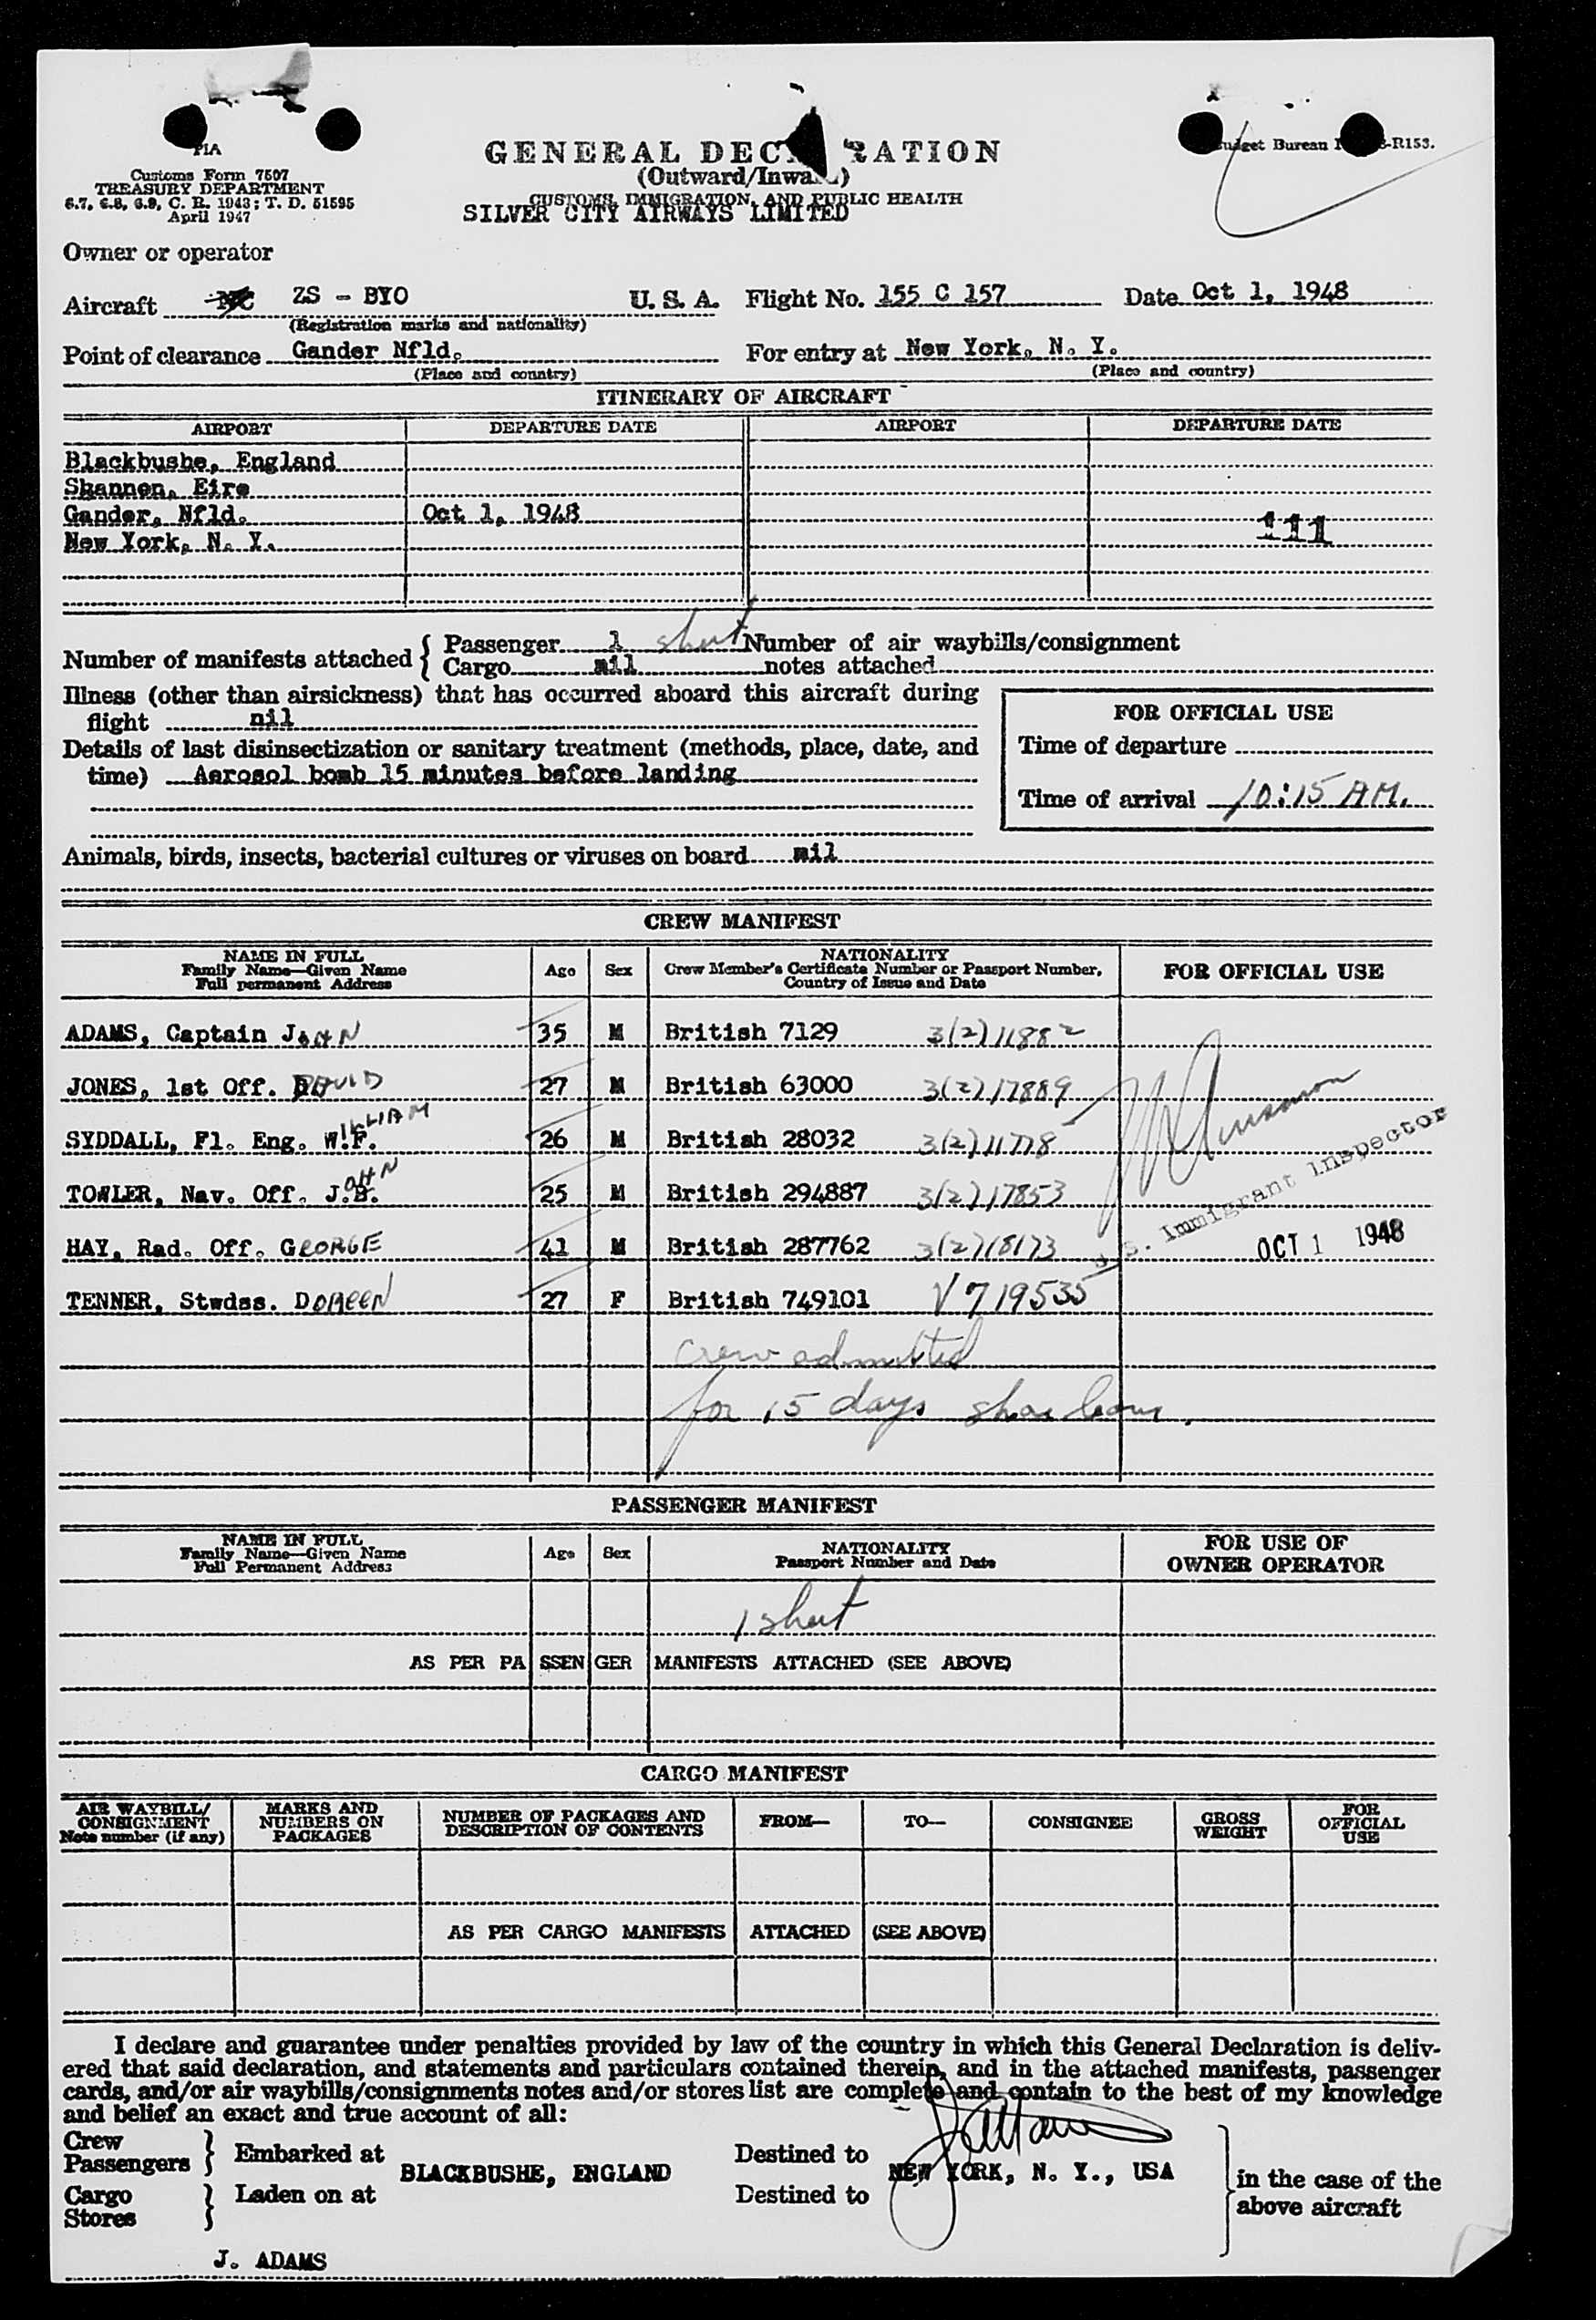 GENERAL DEC RATION
(Outward/Inwa )
CUSTOMS, IMMIGRATION, AND PUBLIC HEALTH
SILVER CITY AIRWAYS LIMITED
Customs Form 7507
TREASURY DEPARTMENT
6.7, 6.8, 6.9, C. R. 1943; T. D. 51595
April 1947
Budget Bureau -R153.
Owner or operator
Aircraft NC ZS - BYO U. S. A. Flight No. 155 C 157 Date Oct 1, 1948
(Registration marks and nationality)
Point of clearance Gander Nfld. For entry at New York, N. Y.
(Place and country) (Place and country)
ITINERARY OF AIRCRAFT
AIRPORT DEPARTURE DATE AIRPORT DEPARTURE DATE
Blackbushe, England
Shannon, Eire
Gander, Nfld. Oct 1, 1948
New York, N. Y. 111
Number of manifests attached { Passenger 1 sheet Number of air waybills/consignment
Cargo nil notes attached
Illness (other than airsickness) that has occurred aboard this aircraft during
flight nil
Details of last disinsectization or sanitary treatment (methods, place, date, and
time) Aerosol bomb 15 minutes before landing
FOR OFFICIAL USE
Time of departure
Time of arrival 10:15 AM.
Animals, birds, insects, bacterial cultures or viruses on board nil
CREW MANIFEST
NAME IN FULL
Family Name—Given Name
Full permanent Address
Age Sex
NATIONALITY
Crew Member's Certificate Number or Passport Number,
Country of Issue and Date
FOR OFFICIAL USE
ADAMS, Captain JOHN 35 M British 7129 3(2)11882
JONES, 1st Off. DAVID 27 M British 63000 3(2)17889
SYDDALL, Fl. Eng. W.F. WILLIAM 26 M British 28032 3(2)11778
TOWLER, Nav. Off. J.B. JOHN 25 M British 294887 3(2)17853
HAY, Rad. Off. GEORGE 41 M British 287762 3(2)18173
TENNER, Stwdss. DOREEN 27 F British 749101 V719535
U. S. Immigrant Inspector
OCT 1 1948
Crew admitted
for 15 days shore leave.
PASSENGER MANIFEST
NAME IN FULL
Family Name—Given Name
Full Permanent Address
Age Sex
NATIONALITY
Passport Number and Date
FOR USE OF
OWNER OPERATOR
1 sheet
AS PER PASSENGER MANIFESTS ATTACHED (SEE ABOVE)
CARGO MANIFEST
AIR WAYBILL/
CONSIGNMENT
Note number (if any)
MARKS AND
NUMBERS ON
PACKAGES
NUMBER OF PACKAGES AND
DESCRIPTION OF CONTENTS
FROM— TO— CONSIGNEE
GROSS
WEIGHT
FOR
OFFICIAL
USE
AS PER CARGO MANIFESTS ATTACHED (SEE ABOVE)
I declare and guarantee under penalties provided by law of the country in which this General Declaration is deliv-
ered that said declaration, and statements and particulars contained therein, and in the attached manifests, passenger
cards, and/or air waybills/consignments notes and/or stores list are complete and contain to the best of my knowledge
and belief an exact and true account of all:
Crew
Passengers } Embarked at BLACKBUSHE, ENGLAND Destined to NEW YORK, N. Y., USA
Cargo
Stores } Laden on at Destined to
in the case of the
above aircraft
J. ADAMS